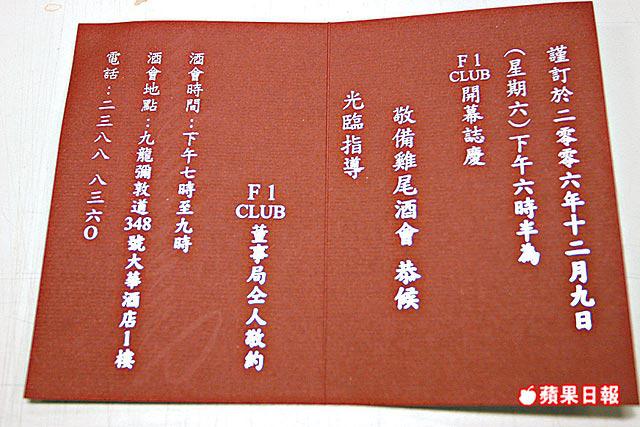 謹訂於二零零六年十二月九日
(星期六)下午六時半為
F1 CLUB 開幕誌慶
敬備雞尾酒會 恭候
光臨指導
F1 CLUB 董事局仝人敬約
酒會時間：下午七時至九時
酒會地點：九龍彌敦道348號大華酒店1樓
電話：二三八八 八三六〇
蘋果日報